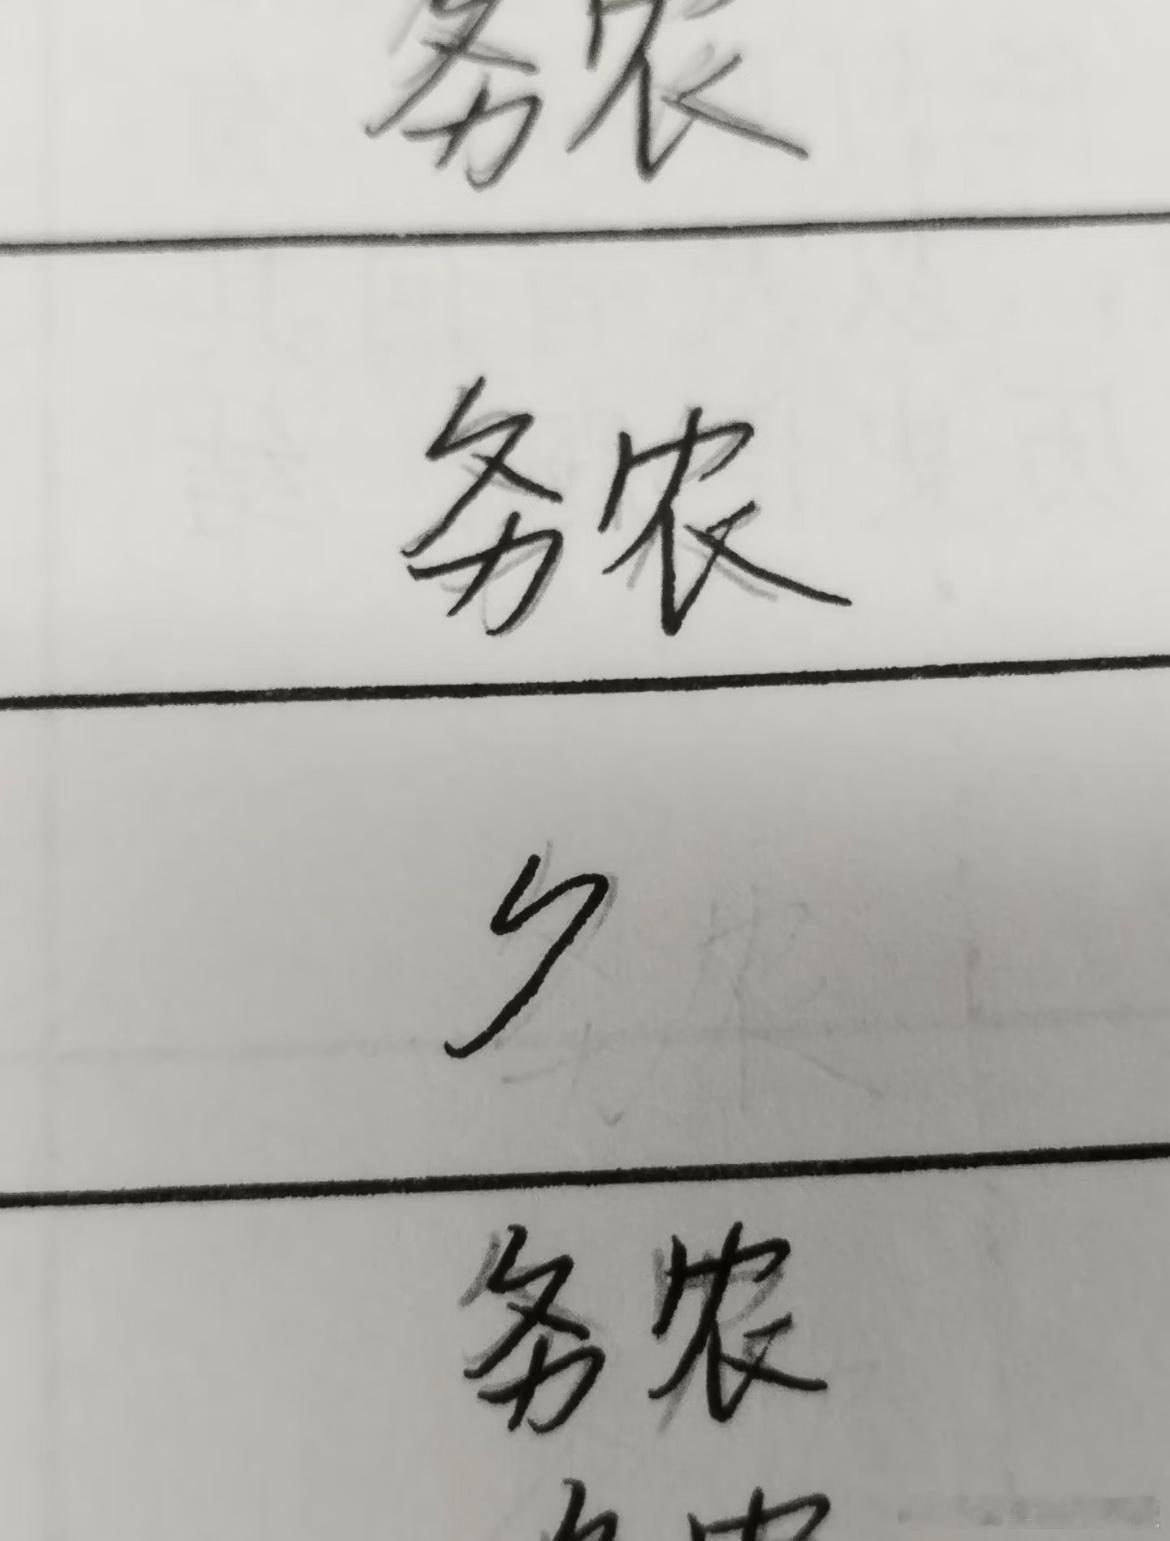 务农
务农
务农